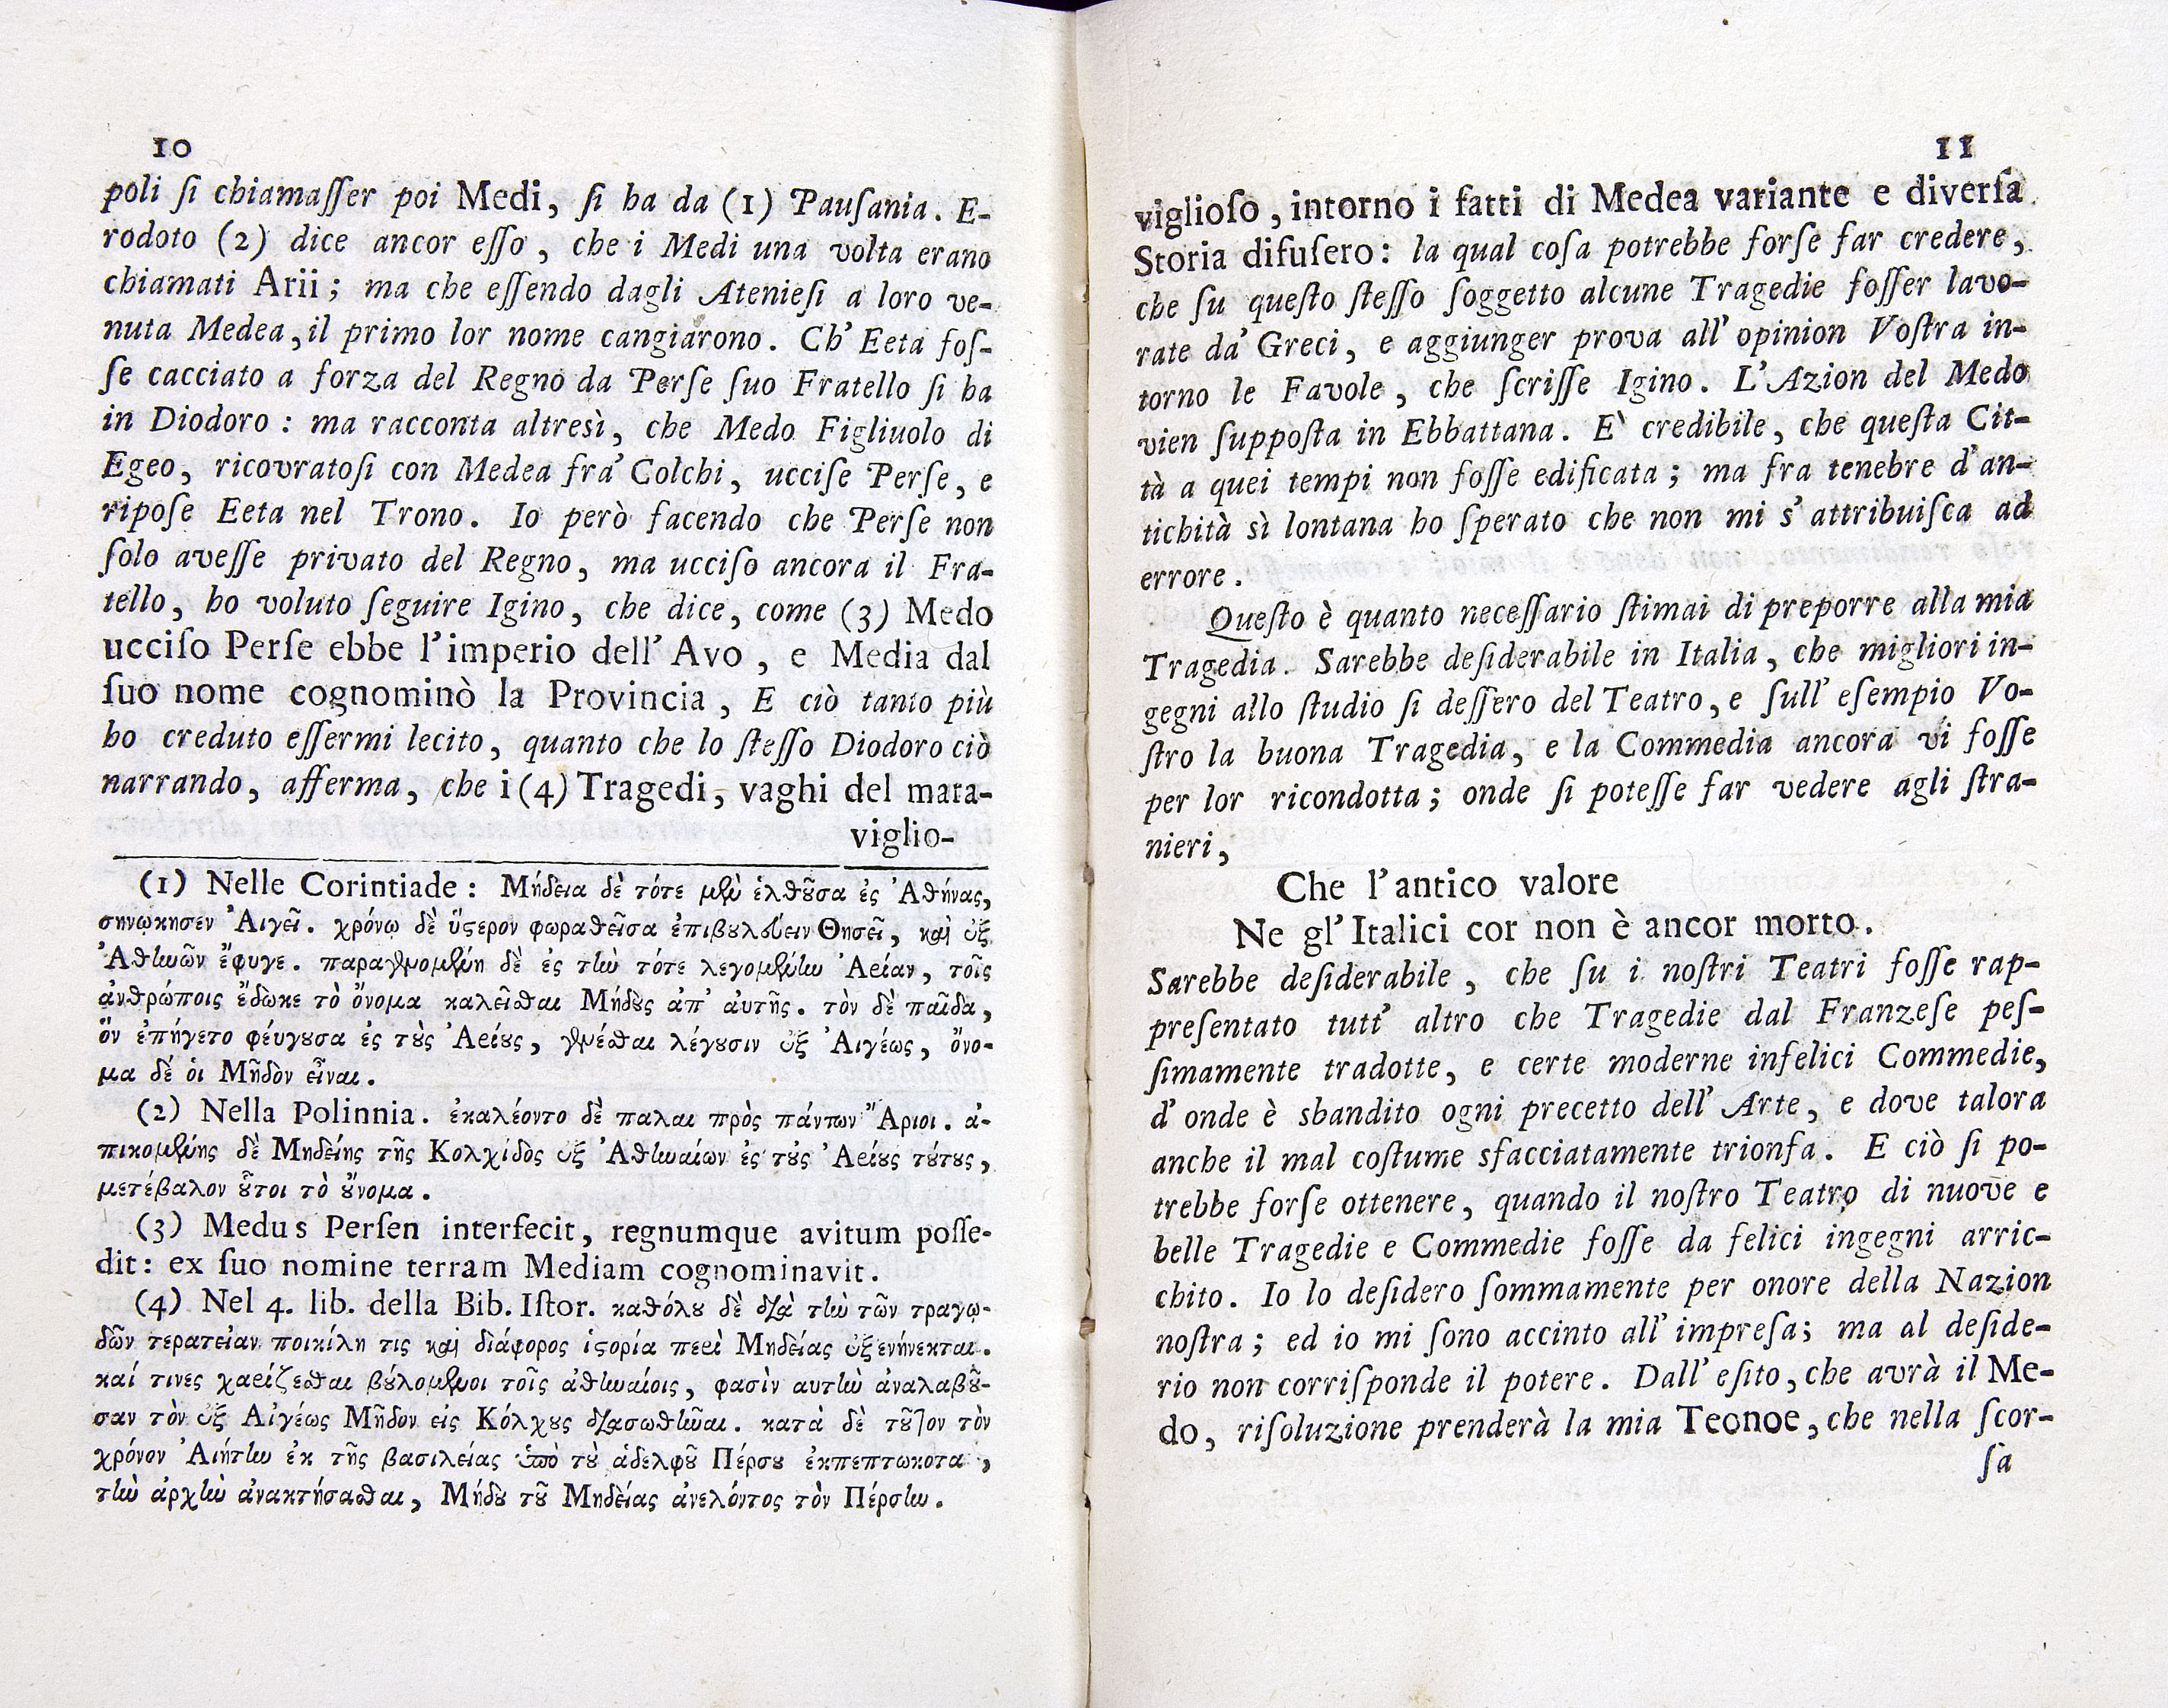 10
poli ſi chiamaſſer poi Medi, ſi ha da (1) Pauſania. E-
rodoto (2) dice ancor eſſo, che i Medi una volta erano
chiamati Arii; ma che eſſendo dagli Atenieſi a loro ve-
nuta Medea, il primo lor nome cangiarono. Ch' Eeta foſ-
ſe cacciato a forza del Regno da Perſe ſuo Fratello ſi ha
in Diodoro: ma racconta altresì, che Medo Figliuolo di
Egeo, ricovratoſi con Medea fra' Colchi, ucciſe Perſe, e
ripoſe Eeta nel Trono. Io però facendo che Perſe non
ſolo aveſſe privato del Regno, ma ucciſo ancora il Fra-
tello, ho voluto ſeguire Igino, che dice, come (3) Medo
ucciſo Perſe ebbe l'imperio dell' Avo, e Media dal
ſuo nome cognominò la Provincia, E ciò tanto più
ho creduto eſſermi lecito, quanto che lo ſteſſo Diodoro ciò
narrando, afferma, che i (4) Tragedi, vaghi del mara-
viglio-
(1) Nelle Corintiade: Μήδεια δὲ τότε μὲν ἐλθοῦσα ἐς Ἀθήνας,
σηνῴκησεν Ἀιγεῖ. χρόνῳ δὲ ὕστερον φωραθεῖσα ἐπιβουλεύειν Θησεῖ, καὶ ἐξ
Ἀθηνῶν ἔφυγε. παραγενομένη δὲ ἐς τὴν τότε λεγομένην Ἀρίαν, τοῖς
ἀνθρώποις ἔδωκε τὸ ὄνομα καλεῖσθαι Μήδους ἀπ' ἀυτῆς. τὸν δὲ παῖδα,
ὃν ἐπήγετο φέυγουσα ἐς τοὺς Ἀρίους, γενέσθαι λέγουσιν ἐξ Ἀιγέως, ὄνο-
μα δέ ὁι Μῆδον εἶναι.
(2) Nella Polinnia. ἐκαλέοντο δὲ παλαι πρὸς πάντων Ἄριοι. ἀ-
πικομένης δὲ Μηδείης τῆς Κολχίδος ἐξ Ἀθηναίων ἐς τοὺς Ἀρίους τούτους,
μετέβαλον οὗτοι τὸ οὔνομα.
(3) Medus Perſen interfecit, regnumque avitum poſſe-
dit: ex ſuo nomine terram Mediam cognominavit.
(4) Nel 4. lib. della Bib. Iſtor. καθόλου δὲ διὰ τὴν τῶν τραγῳ-
δῶν τερατείαν ποικίλη τις καὶ διάφορος ἱστορία περὶ Μηδείας ἐξενήνεκται.
καί τινες χαρίζεσθαι βουλομενοι τοῖς ἀθηναίοις, φασὶν αυτὴν ἀναλαβοῦ-
σαν τὸν ἐξ Αἰγέως Μῆδον εἰς Κόλχους διασωθῆναι. κατὰ δὲ τοῦτον τὸν
χρόνον Ἀιήτην ἐκ τῆς βασιλείας ὑπὸ τοὺ ἀδελφοῦ Πέρσου ἐκπεπτωκοτα,
τὴν ἀρχὴν ἀνακτήσασθαι, Μήδου τοῦ Μηδείας ἀνελόντος τὸν Πέρσην.
11
viglioſo, intorno i fatti di Medea variante e diverſa
Storia difuſero: la qual coſa potrebbe forſe far credere,
che ſu queſto ſteſſo ſoggetto alcune Tragedie foſſer lavo-
rate da' Greci, e aggiunger prova all' opinion Voſtra in-
torno le Favole, che ſcriſſe Igino. L'Azion del Medo
vien ſuppoſta in Ebbattana. E' credibile, che queſta Cit-
tà a quei tempi non foſſe edificata; ma fra tenebre d'an-
tichità sì lontana ho ſperato che non mi s'attribuiſca ad
errore.
Queſto è quanto neceſſario ſtimai di preporre alla mia
Tragedia. Sarebbe deſiderabile in Italia, che migliori in-
gegni allo ſtudio ſi deſſero del Teatro, e ſull' eſempio Vo-
ſtro la buona Tragedia, e la Commedia ancora vi foſſe
per lor ricondotta; onde ſi poteſſe far vedere agli ſtra-
nieri,
Che l'antico valore
Ne gl'Italici cor non è ancor morto.
Sarebbe deſiderabile, che ſu i noſtri Teatri foſſe rap-
preſentato tutt' altro che Tragedie dal Franzeſe peſ-
ſimamente tradotte, e certe moderne infelici Commedie,
d'onde è sbandito ogni precetto dell' Arte, e dove talora
anche il mal coſtume sfacciatamente trionfa. E ciò ſi po-
trebbe forſe ottenere, quando il noſtro Teatro di nuove e
belle Tragedie e Commedie foſſe da felici ingegni arric-
chito. Io lo deſidero ſommamente per onore della Nazion
noſtra; ed io mi ſono accinto all' impreſa; ma al deſide-
rio non corriſponde il potere. Dall' eſito, che avrà il Me-
do, riſoluzione prenderà la mia Teonoe, che nella ſcor-
ſa